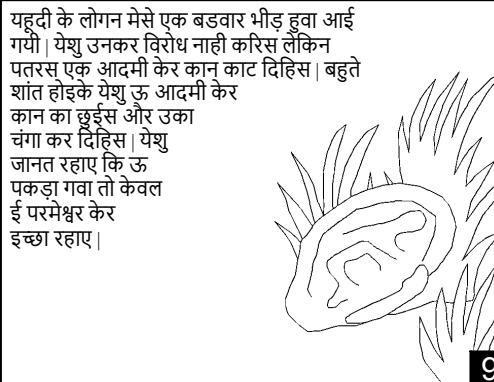 यहूदी के लोगन मेसे एक बडवार भीड़ हुवा आई
गयी | येशु उनकर विरोध नाही करिस लेकिन
पतरस एक आदमी केर कान काट दिहिस | बहुते
शांत होइके येशु ऊ आदमी केर
कान का छुईस और उका
चंगा कर दिहिस | येशु
जानत रहाए कि ऊ
पकड़ा गवा तो केवल
ई परमेश्वर केर
इच्छा रहाए |
9